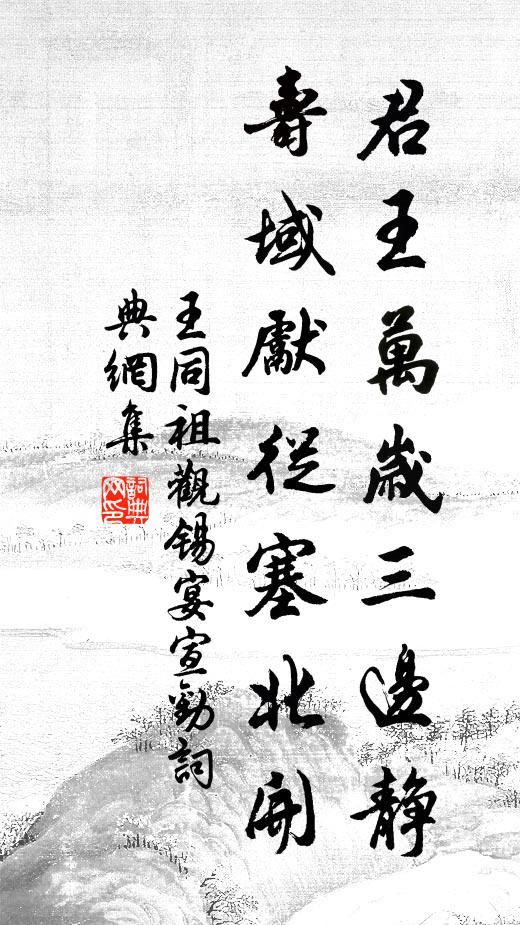 君王萬歲三邊靜
壽域獻從塞北開
王同祖觀錫宴宣勸詞
典網集
詞典網印